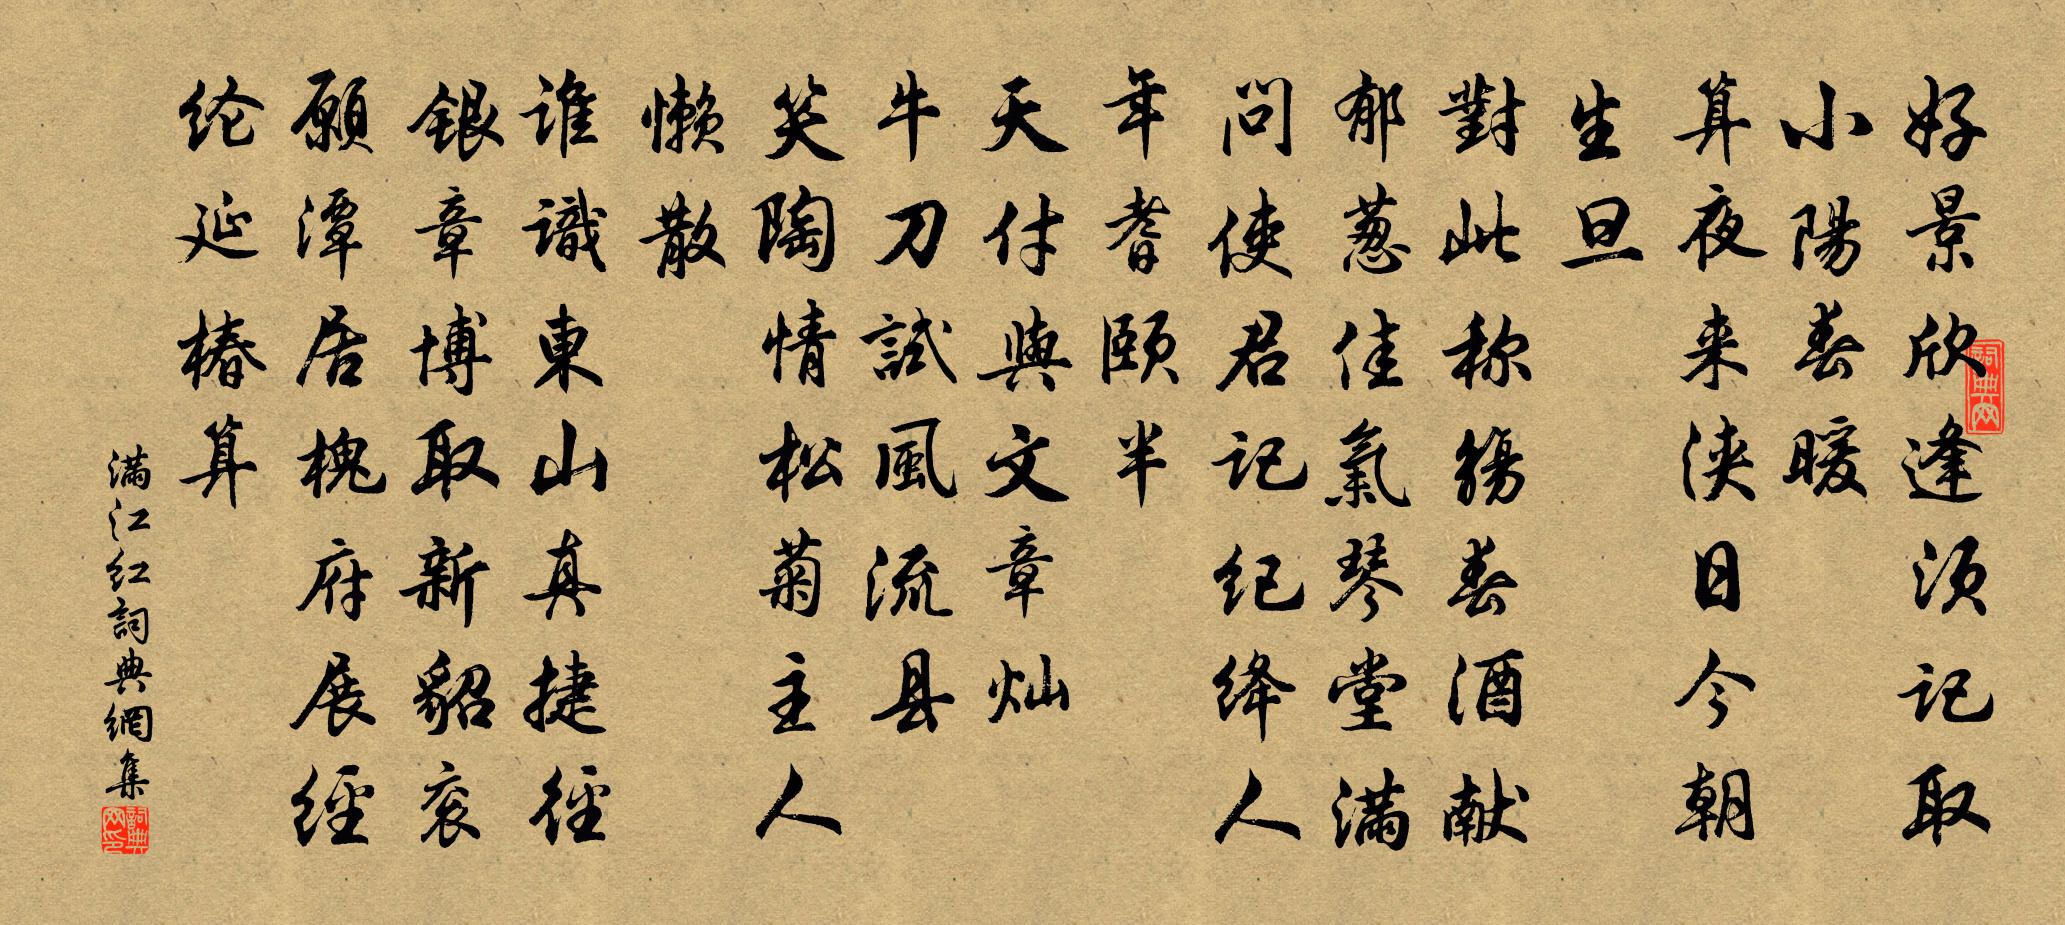 好景欣逢须记取
小陽春暖
算夜来浃日今朝
生旦
對此称觴春酒献
郁葱佳氣琴堂满
问使君记纪绛人
年耆颐半
天付與文章灿
牛刀試風流县
笑陶情松菊主人
懒散
谁識東山真捷徑
銀章博取新貂衮
願潭居槐府展經
纶延椿算
满江红詞典網集
詞典网
詞典网印